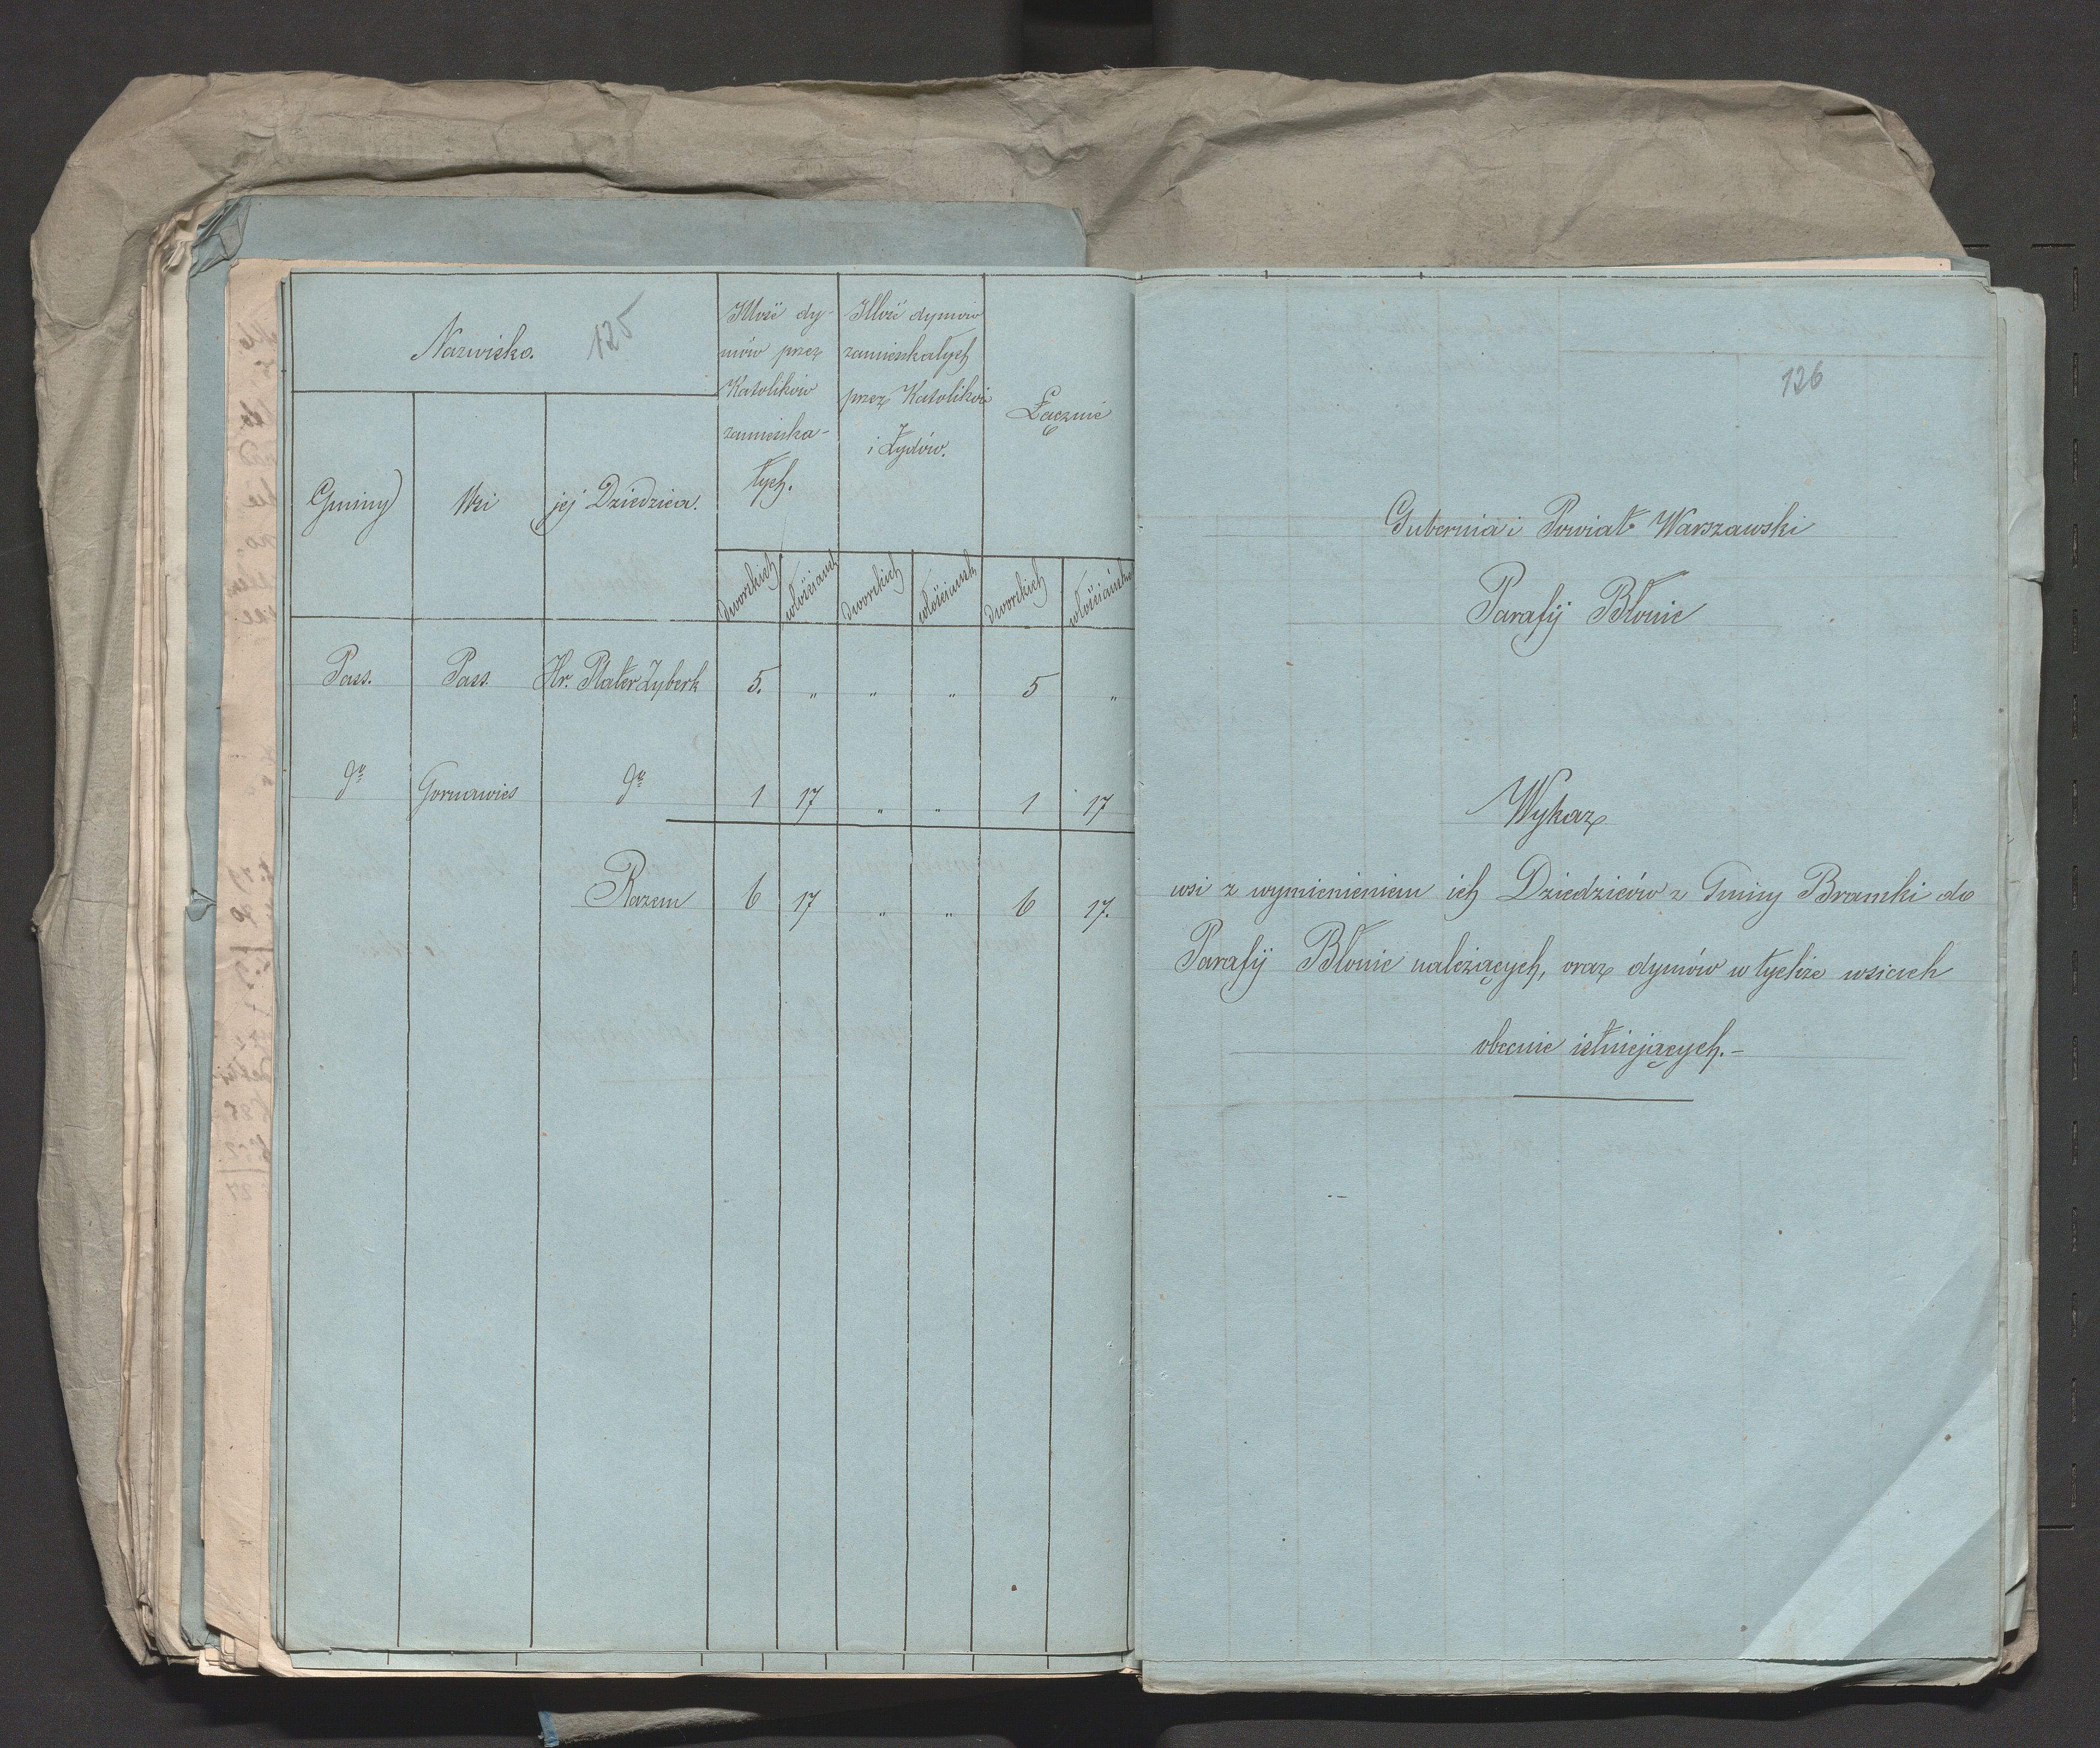 Nazwisko. 125
Gminy Wsi jej Dziedzica.
Illość dy-
mów przez
Katolików
zamieszka-
łych.
Illość dymów
zamieszkałych
przez Katolików
i Żydów.
Łącznie
dworskich włościańsk dworskich włościańsk dworskich włościańsk
Pass. Pass. Hr. Plater Zyberk 5. " " " 5 "
do Gornawieś do 1 17 " " 1 17
Razem 6 17 " " 6 17.
126
Gubernia i Powiat Warszawski
Parafij Błonie
Wykaz
wsi z wymienieniem ich Dziedziców z Gminy Bramki do
Parafij Błonie należących, oraz dymów w tychże wsiach
obecnie istniejących.-